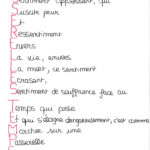 Sentiment oppressant, qui
Suscite peur
Et
Ressentiment
Envers
La vie, envers
La mort, ce sentiment
Ecrasant,
Sentiment de souffrance face au
Temps qui passe
Et qui s'éloigne dangereusement, c'est comme
Marcher sur une
Passerelle